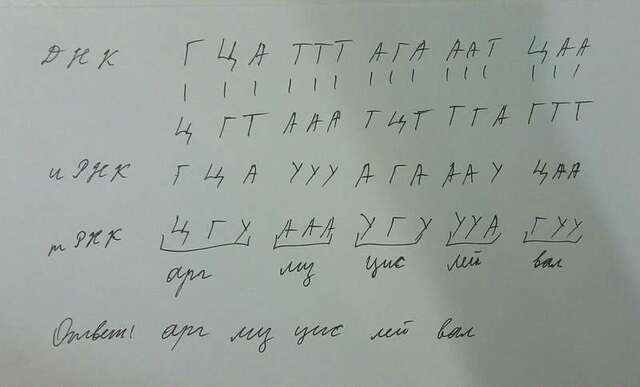 ДНК Г Ц А ТТТ АГА ААТ ЦАА
Ц ГТ ААА ТЦТ ТТА ГТТ
и РНК Г Ц А УУУ А ГА ААУ ЦАА
т РНК Ц Г У ААА У Г У УУА ГУУ
арг лиз цис лей вал
Ответ: арг лиз цис лей вал